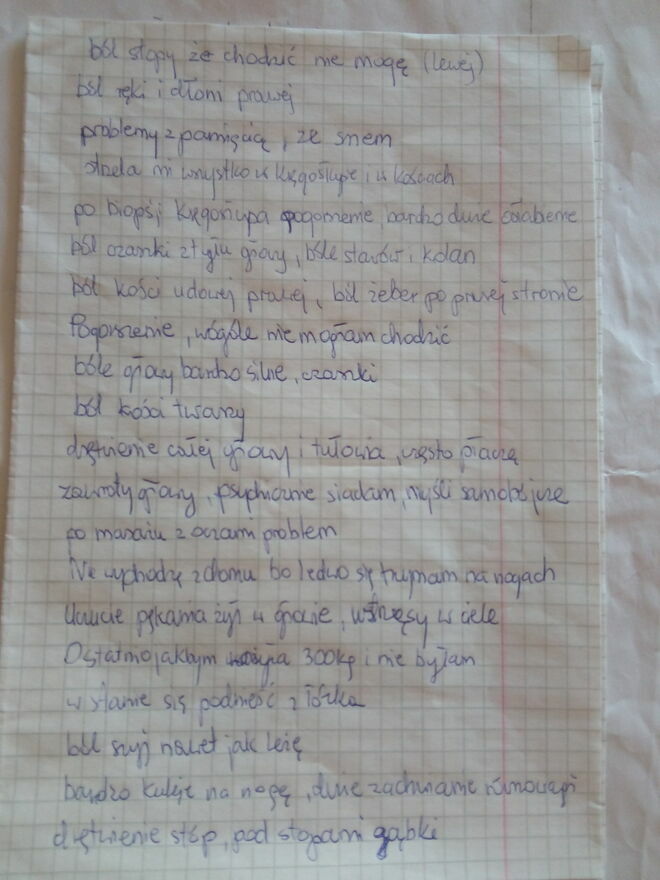 ból stopy że chodzić nie mogę (lewej)
ból ręki i dłoni prawej
problemy z pamięcią, ze snem
strzela mi wszystko w kręgosłupie i w kościach
po biopsji kręgosłupa pogorszenie, bardzo duże osłabienie
ból czaszki z tyłu głowy, bóle stawów i kolan
ból kości udowej prawej, ból żeber po prawej stronie
Pogorszenie, wógóle nie mogłam chodzić
bóle głowy bardzo silne, czaszki
ból kości twarzy
drętwienie całej głowy i tułowia, często płaczę
zawroty głowy, psychicznie siadam, myśli samobójcze
po masażu z oczami problem
Nie wychodzę z domu bo ledwo się trzymam na nogach
Uczucie pękania żył w głowie, wstrząsy w ciele
Ostatnio jakbym ważyła 300kg i nie byłam
w stanie się podnieść z łóżka
ból szyj nawet jak leżę
bardzo kuleje na nogę, duże zachwianie równowagi
drętwienie stóp, pod stopami gąbki